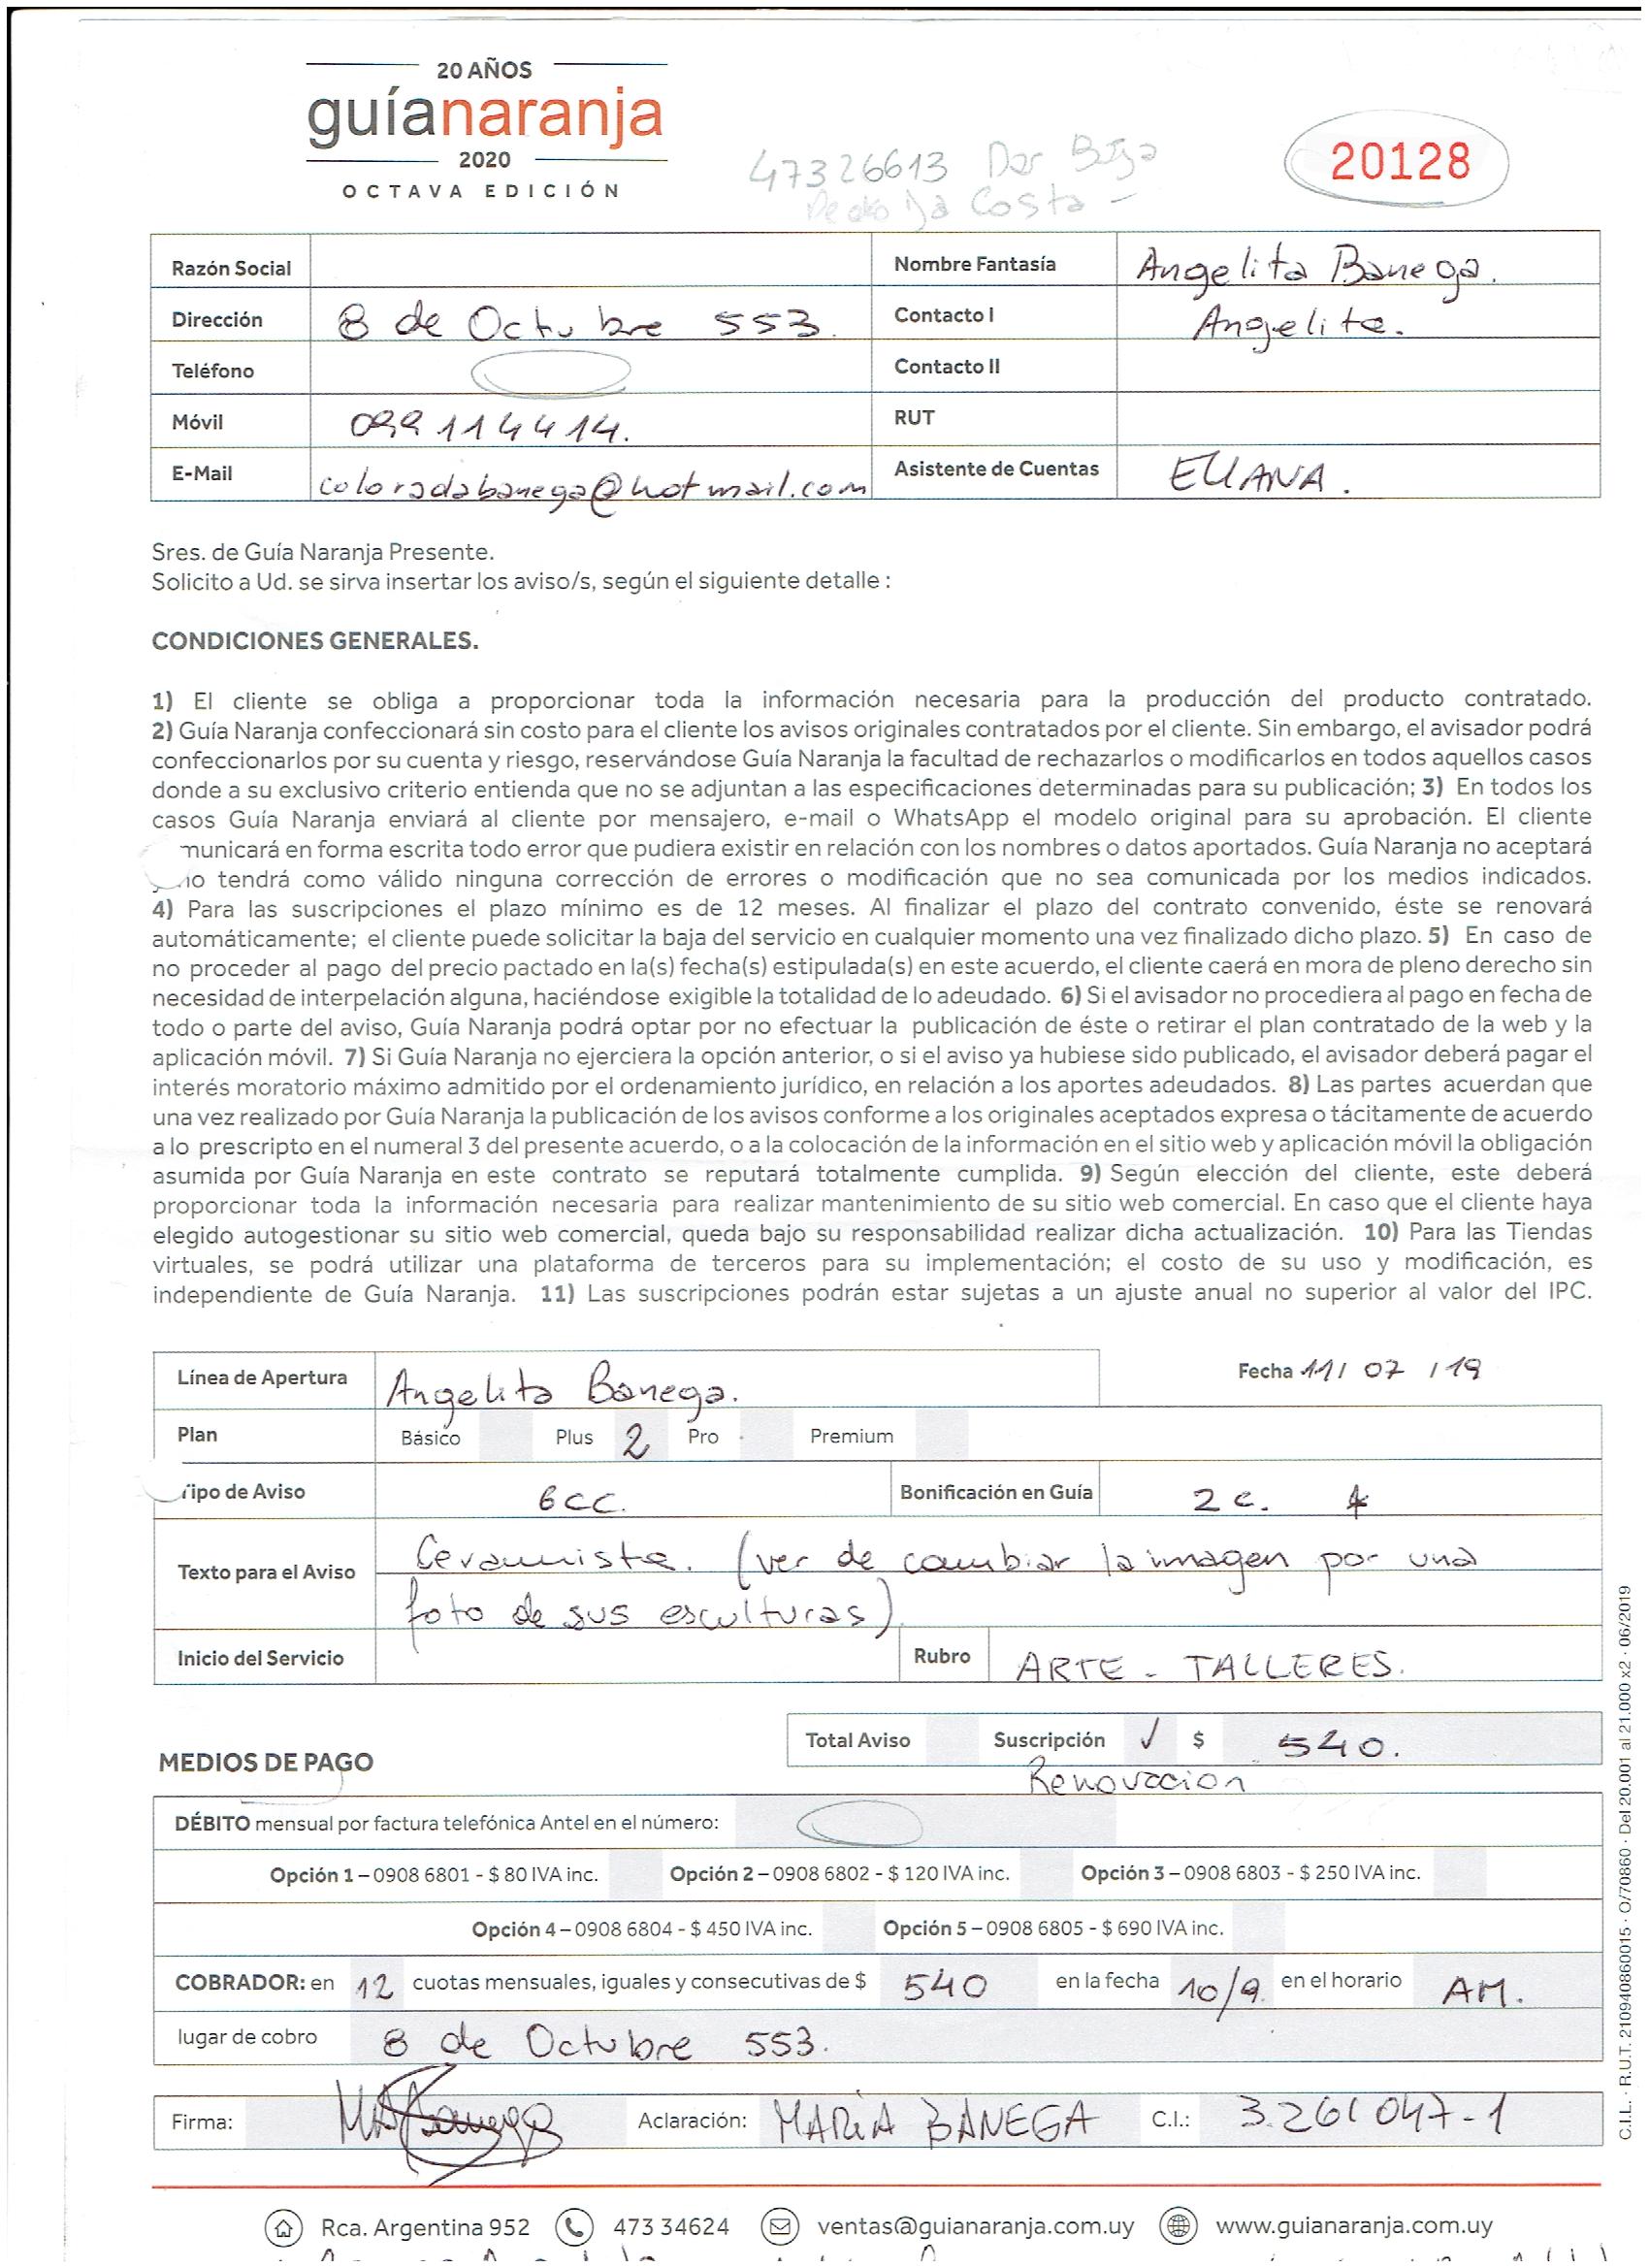 20 AÑOS
guíanaranja
2020
OCTAVA EDICIÓN
47326613 Dar Baja
Da Costa -
20128
Razón Social
Nombre Fantasía Angelita Banega.
Dirección 8 de Octubre 553.
Contacto I Angelita.
Teléfono
Contacto II
Móvil 099114414.
RUT
E-Mail coloradabanega@hotmail.com
Asistente de Cuentas ELIANA.
Sres. de Guía Naranja Presente.
Solicito a Ud. se sirva insertar los aviso/s, según el siguiente detalle :
CONDICIONES GENERALES.
1) El cliente se obliga a proporcionar toda la información necesaria para la producción del producto contratado.
2) Guía Naranja confeccionará sin costo para el cliente los avisos originales contratados por el cliente. Sin embargo, el avisador podrá
confeccionarlos por su cuenta y riesgo, reservándose Guía Naranja la facultad de rechazarlos o modificarlos en todos aquellos casos
donde a su exclusivo criterio entienda que no se adjuntan a las especificaciones determinadas para su publicación; 3) En todos los
casos Guía Naranja enviará al cliente por mensajero, e-mail o WhatsApp el modelo original para su aprobación. El cliente
municará en forma escrita todo error que pudiera existir en relación con los nombres o datos aportados. Guía Naranja no aceptará
y no tendrá como válido ninguna corrección de errores o modificación que no sea comunicada por los medios indicados.
4) Para las suscripciones el plazo mínimo es de 12 meses. Al finalizar el plazo del contrato convenido, éste se renovará
automáticamente; el cliente puede solicitar la baja del servicio en cualquier momento una vez finalizado dicho plazo. 5) En caso de
no proceder al pago del precio pactado en la(s) fecha(s) estipulada(s) en este acuerdo, el cliente caerá en mora de pleno derecho sin
necesidad de interpelación alguna, haciéndose exigible la totalidad de lo adeudado. 6) Si el avisador no procediera al pago en fecha de
todo o parte del aviso, Guía Naranja podrá optar por no efectuar la publicación de éste o retirar el plan contratado de la web y la
aplicación móvil. 7) Si Guía Naranja no ejerciera la opción anterior, o si el aviso ya hubiese sido publicado, el avisador deberá pagar el
interés moratorio máximo admitido por el ordenamiento jurídico, en relación a los aportes adeudados. 8) Las partes acuerdan que
una vez realizado por Guía Naranja la publicación de los avisos conforme a los originales aceptados expresa o tácitamente de acuerdo
a lo prescripto en el numeral 3 del presente acuerdo, o a la colocación de la información en el sitio web y aplicación móvil la obligación
asumida por Guía Naranja en este contrato se reputará totalmente cumplida. 9) Según elección del cliente, este deberá
proporcionar toda la información necesaria para realizar mantenimiento de su sitio web comercial. En caso que el cliente haya
elegido autogestionar su sitio web comercial, queda bajo su responsabilidad realizar dicha actualización. 10) Para las Tiendas
virtuales, se podrá utilizar una plataforma de terceros para su implementación; el costo de su uso y modificación, es
independiente de Guía Naranja. 11) Las suscripciones podrán estar sujetas a un ajuste anual no superior al valor del IPC.
Línea de Apertura Angelita Banega.
Fecha 11/ 07 /19
Plan Básico Plus 2 Pro Premium
Tipo de Aviso 6cc.
Bonificación en Guía 2c.
Texto para el Aviso Ceramista. (ver de cambiar la imagen por una
foto de sus esculturas)
Inicio del Servicio
Rubro ARTE - TALLERES.
Total Aviso Suscripción ✓ $ 540.
Renovacion
MEDIOS DE PAGO
DÉBITO mensual por factura telefónica Antel en el número:
Opción 1 – 0908 6801 - $ 80 IVA inc. Opción 2 – 0908 6802 - $ 120 IVA inc. Opción 3 – 0908 6803 - $ 250 IVA inc.
Opción 4 – 0908 6804 - $ 450 IVA inc. Opción 5 – 0908 6805 - $ 690 IVA inc.
COBRADOR: en 12 cuotas mensuales, iguales y consecutivas de $ 540 en la fecha 10/9. en el horario AM.
lugar de cobro 8 de Octubre 553.
Firma: Aclaración: MARÍA BANEGA C.I.: 3.261047-1
Rca. Argentina 952 473 34624 ventas@guianaranja.com.uy www.guianaranja.com.uy
C.I.L. · R.U.T. 210940860015 · O/70860 · Del 20.001 al 21.000 x2 · 06/2019